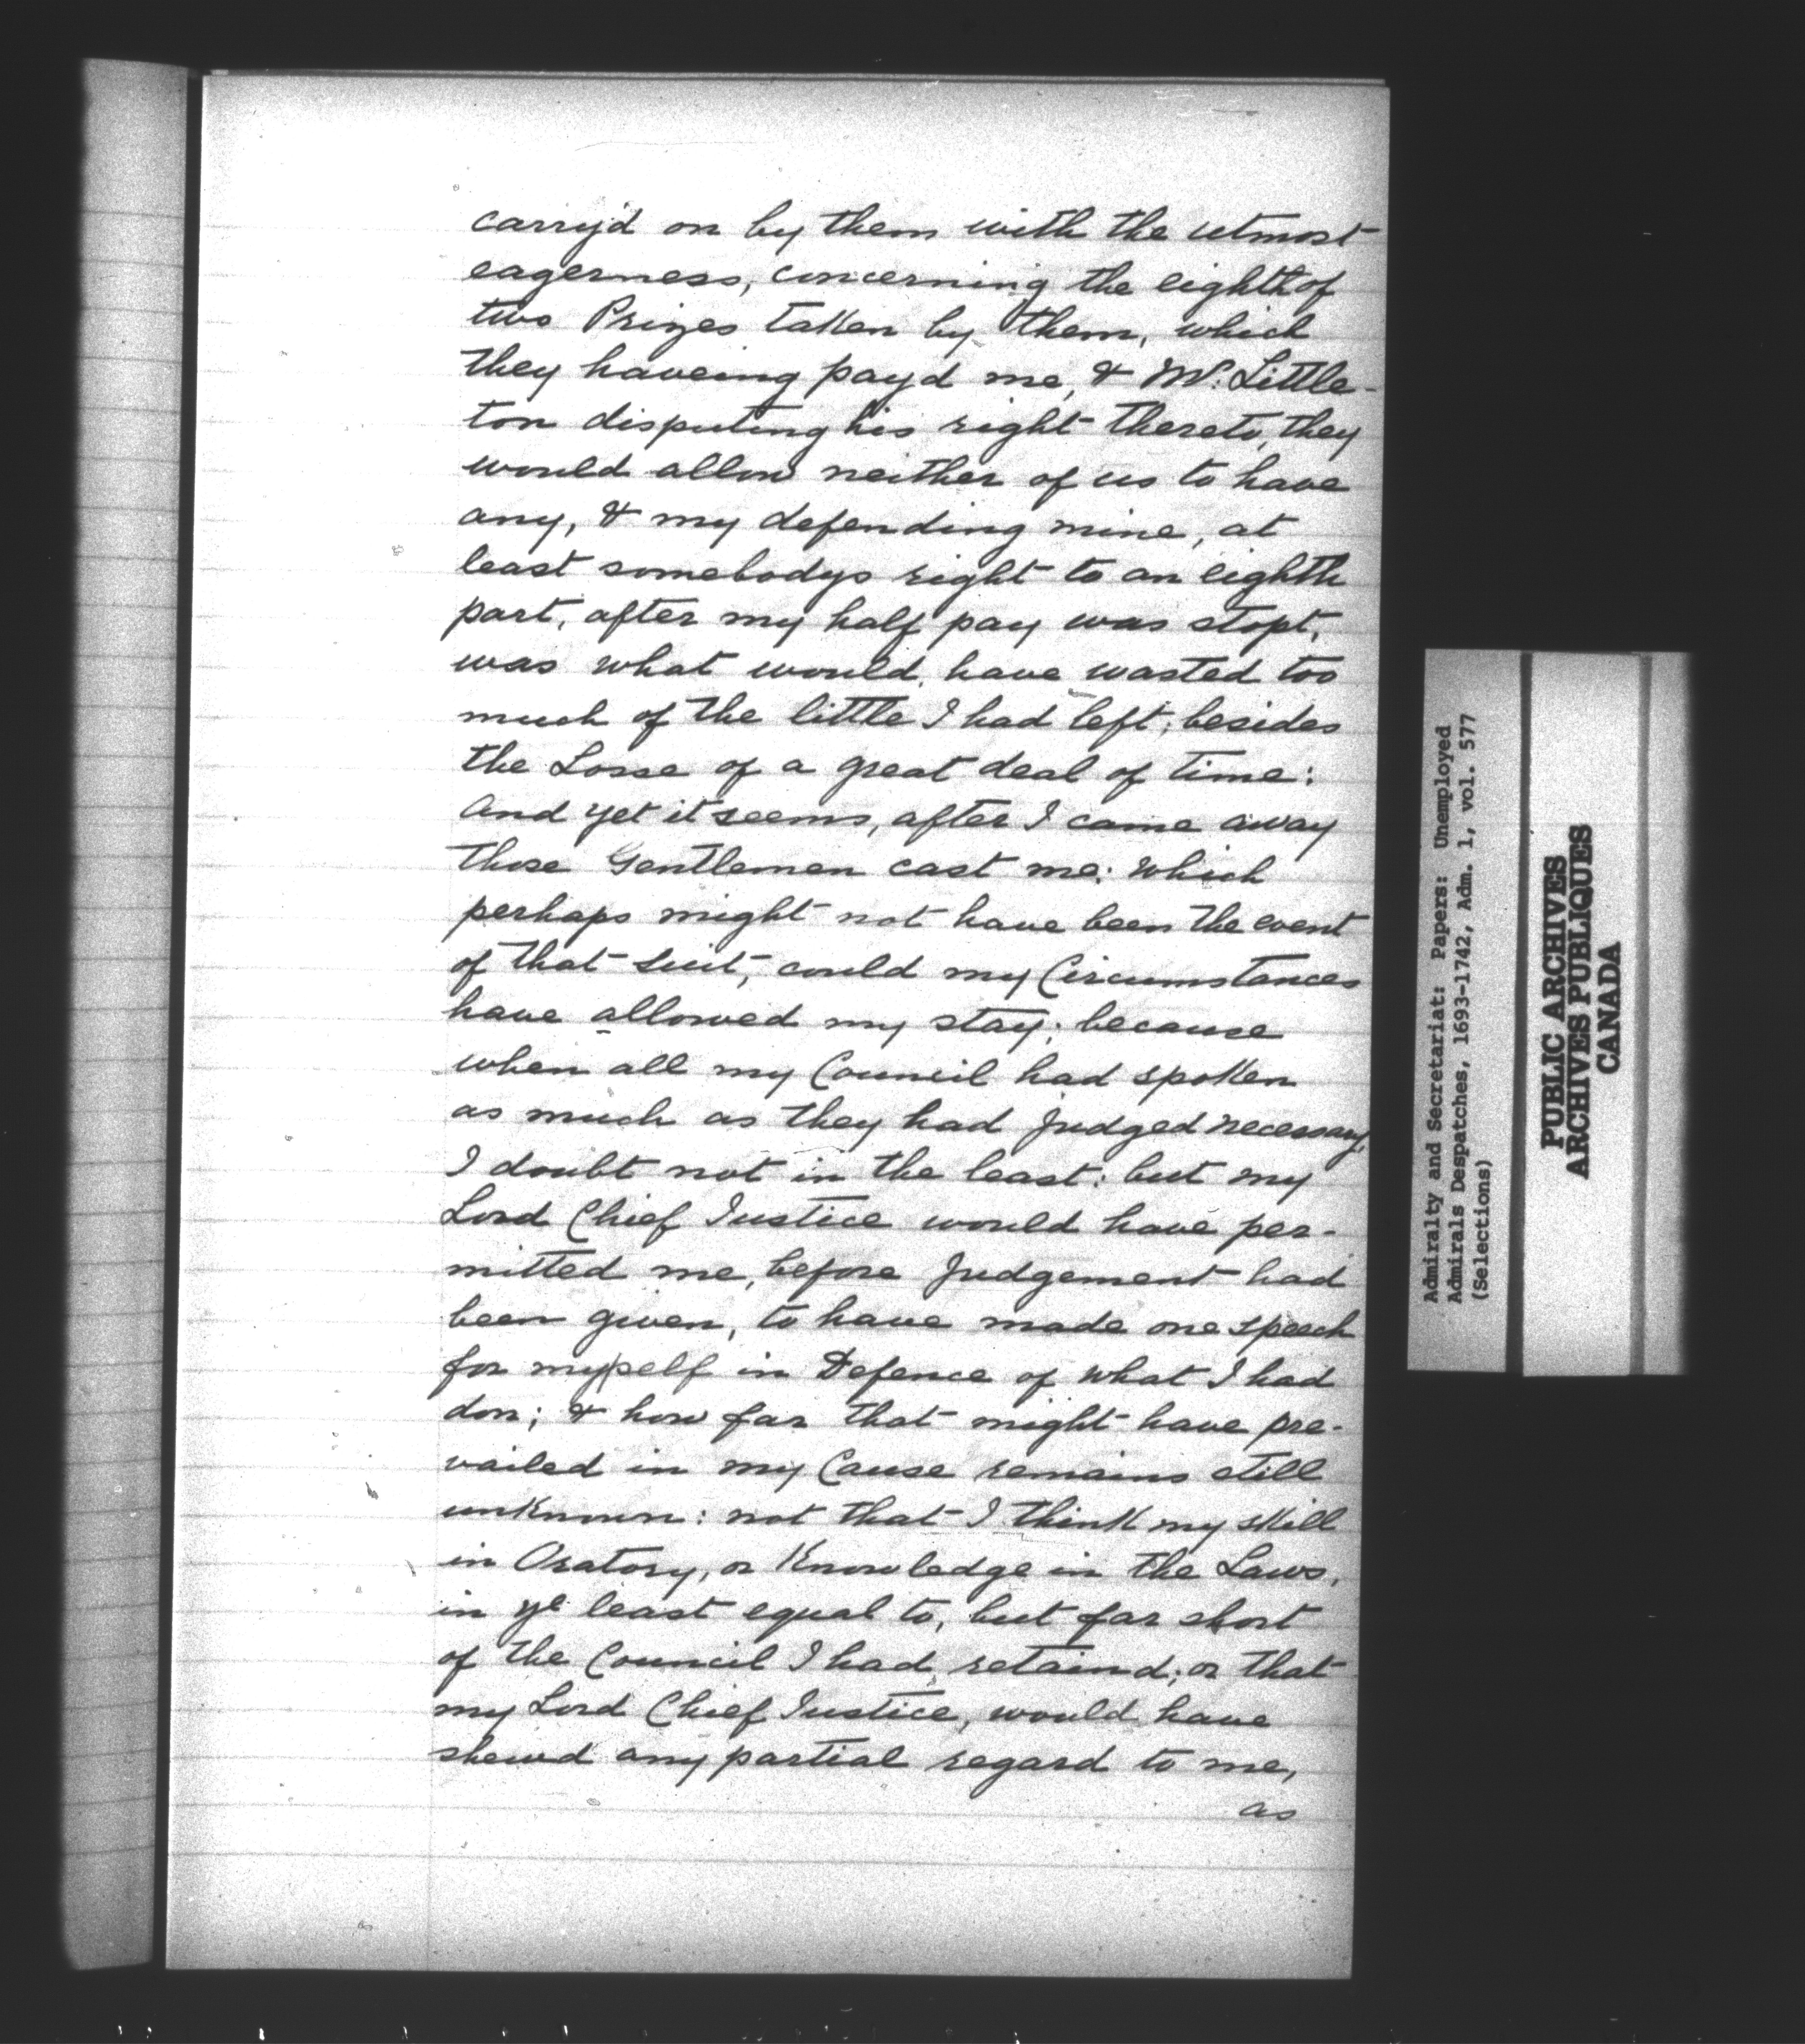 carry'd on by them with the utmost
eagerness, concerning the eighth of
two Prizes taken by them, which
they haveing pay'd me, & Mr. Little-
ton disputing his right thereto, they
would allow neither of us to have
any, & my defending mine, at
least somebodys right to an eighth
part, after my half pay was stopt,
was what would have wasted too
much of the little I had left; besides
the Losse of a great deal of time:
And yet it seems, after I came away
those Gentlemen cast me: which
perhaps might not have been the event
of that suit, could my Circumstances
have allowed my stay; because
when all my Council had spoken
as much as they had judged necessary,
I doubt not in the least: but my
Lord Chief Justice would have per-
mitted me, before Judgement had
been given, to have made one speech
for myself in Defence of what I had
don; & how far that might have pre-
vailed in my Cause remains still
unknown: not that I think my skill
in Oratory, or Knowledge in the Laws,
in ye least equal to, but far short
of the Council I had retain'd; or that
my Lord Chief Justice, would have
shewd any partial regard to me,
as
Admiralty and Secretariat: Papers: Unemployed
Admirals Despatches, 1693-1742, Adm. 1, vol. 577
(Selections)
PUBLIC ARCHIVES
ARCHIVES PUBLIQUES
CANADA